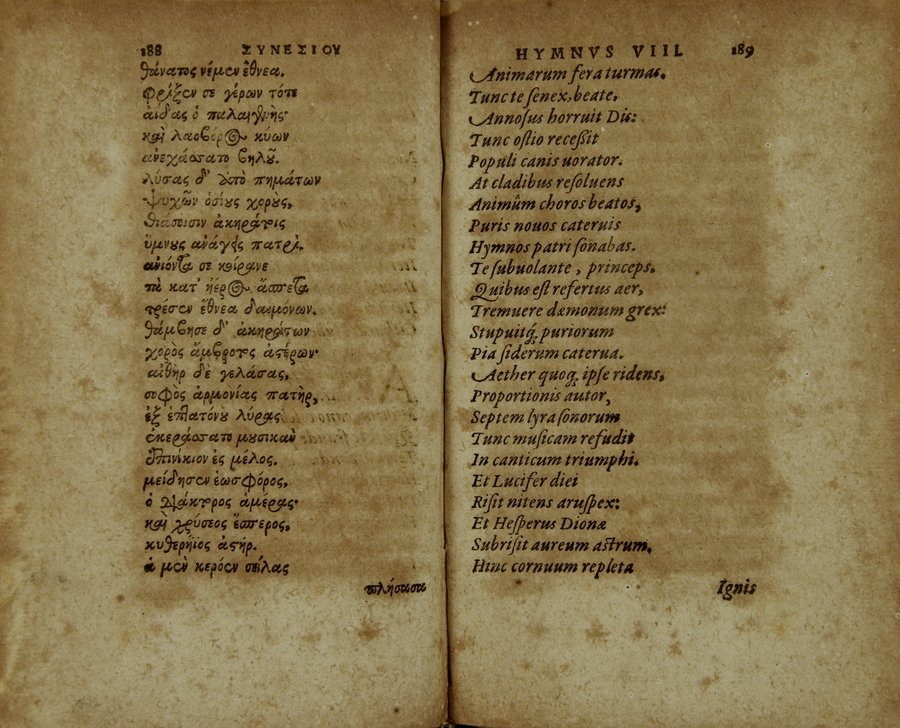 188 ΣΥΝΕΣΙΟΥ
θάνατος νέμεν ἔθνεα.
Φρίξέν σε γέρων τότε
ἀΐδας ὁ παλαιγενὴς·
καὶ λαοβόρος κύων
ἀνεχάσσατο βηλοῦ.
λύσας δ' ἀπὸ πημάτων
ψυχῶν ὁσίους χορούς,
θιάσοισιν ἀκηράτοις
ὕμνους ἀνάγεις πατρί.
ἀνιόντα σε κοίρανε
τὰ κατ' ἠέρος ἄσπετα
τρέσεν ἔθνεα δαιμόνων.
θάμβησε δ' ἀκηράτων
χορὸς ἄμβροτος ἀστέρων·
αἰθὴρ δὲ γελάσας,
σοφὸς ἁρμονίας πατὴρ,
ἐξ ἑπτατόνου λύρας
ἐκεράσσατο μουσικὰν
ἐπινίκιον ἐς μέλος.
μείδησεν ἑωσφόρος,
ὁ διάκτορος ἁμέρας·
καὶ χρύσεος ἕσπερος,
κυθερήϊος ἀστήρ.
ἁ μὲν κερόεν σέλας
πλήσασα
HYMNVS VIII. 189
Animarum fera turmas.
Tunc te senex, beate,
Annosus horruit Dis:
Tunc ostio recessit
Populi canis uorator.
At cladibus resoluens
Animûm choros beatos,
Puris nouos cateruis
Hymnos patri sonabas.
Te subuolante, princeps,
Quibus est refertus aer,
Tremuere dæmonum grex:
Stupuitq́; puriorum
Pia siderum caterua.
Aether quoq; ipse ridens,
Proportionis autor,
Septem lyra sonorum
Tunc musicam refudit
In canticum triumphi.
Et Lucifer diei
Risit nitens aruspex:
Et Hesperus Dionæ
Subrisit aureum astrum.
Hinc cornuum repleta
Ignis